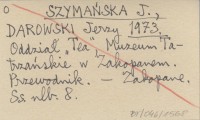 SZYMAŃSKA J.,
DAROWSKI Jerzy 1973.
Oddział "Tea" Muzeum Ta-
trzańskie w Zakopanem.
Przewodnik. – Zakopane.
Ss nlb. 8.